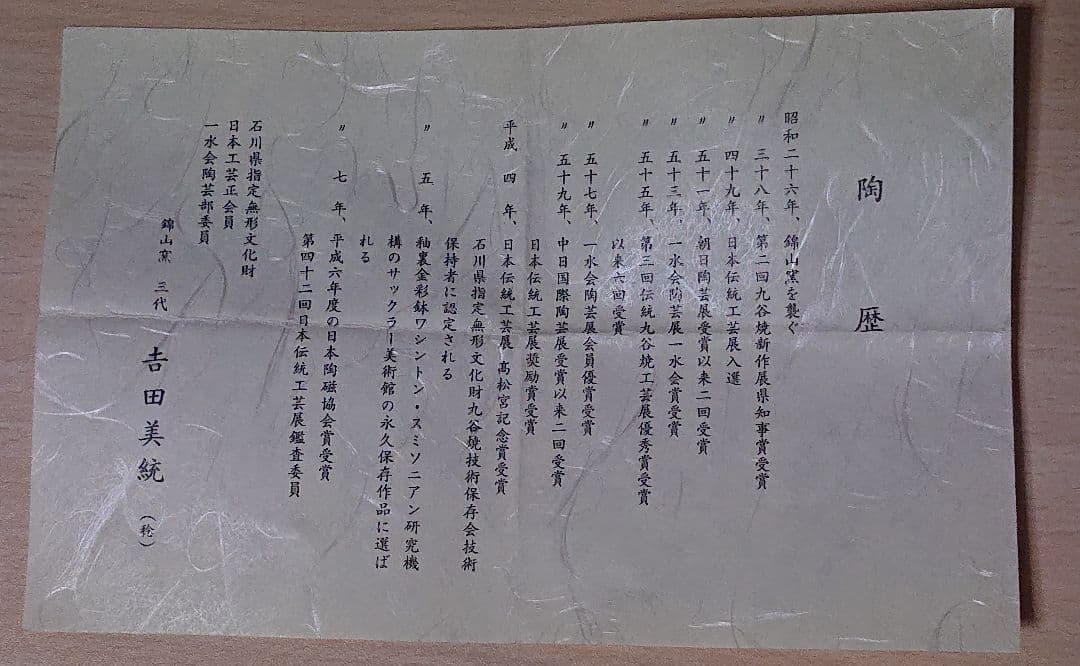 陶歴
昭和二十六年、錦山窯を襲ぐ
〃 三十八年、第二回九谷焼新作展県知事賞受賞
〃 四十九年、日本伝統工芸展入選
〃 五十一年、朝日陶芸展受賞以来二回受賞
〃 五十三年、一水会陶芸展一水会賞受賞
〃 五十五年、第三回伝統九谷焼工芸展優秀賞受賞
以来六回受賞
〃 五十七年、一水会陶芸展会員優賞受賞
〃 五十九年、中日国際陶芸展受賞以来二回受賞
日本伝統工芸展奨励賞受賞
平成 四 年、日本伝統工芸展 高松宮記念賞受賞
石川県指定無形文化財九谷焼技術保存会技術
保持者に認定される
〃 五 年、釉裏金彩鉢ワシントン・スミソニアン研究機
構のサックラー美術館の永久保存作品に選ば
れる
〃 七 年、平成六年度の日本陶磁協会賞受賞
第四十二回日本伝統工芸展鑑査委員
石川県指定無形文化財
日本工芸正会員
一水会陶芸部委員
錦山窯 三代 𠮷田美統 (稔)